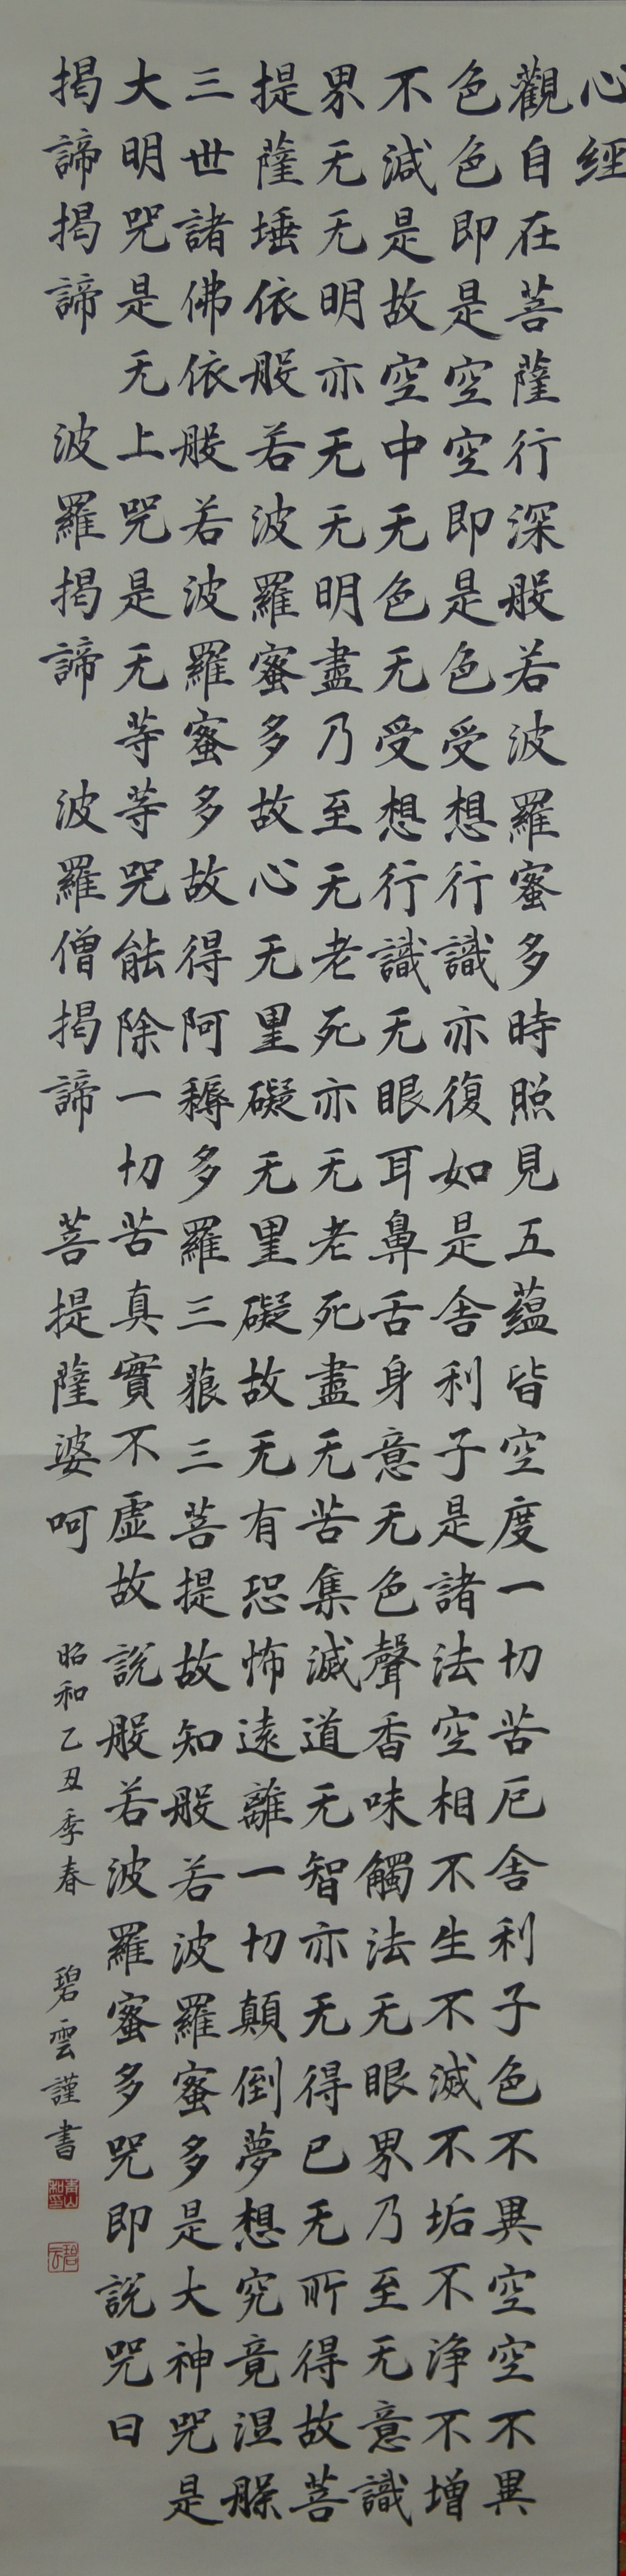 心經
觀自在菩薩行深般若波羅蜜多時照見五蘊皆空度一切苦厄舍利子色不異空空不異
色色即是空空即是色受想行識亦復如是舍利子是諸法空相不生不滅不垢不淨不增
不減是故空中无色无受想行識无眼耳鼻舌身意无色聲香味觸法无眼界乃至无意識
界无无明亦无无明盡乃至无老死亦无老死盡无苦集滅道无智亦无得已无所得故菩
提薩埵依般若波羅蜜多故心无罣礙无罣礙故无有恐怖遠離一切顛倒夢想究竟涅槃
三世諸佛依般若波羅蜜多故得阿耨多羅三藐三菩提故知般若波羅蜜多是大神咒是
大明咒是无上咒是无等等咒能除一切苦真實不虛故說般若波羅蜜多咒即說咒曰
揭諦揭諦 波羅揭諦 波羅僧揭諦 菩提薩婆呵
昭和乙丑季春 碧雲謹書
碧云